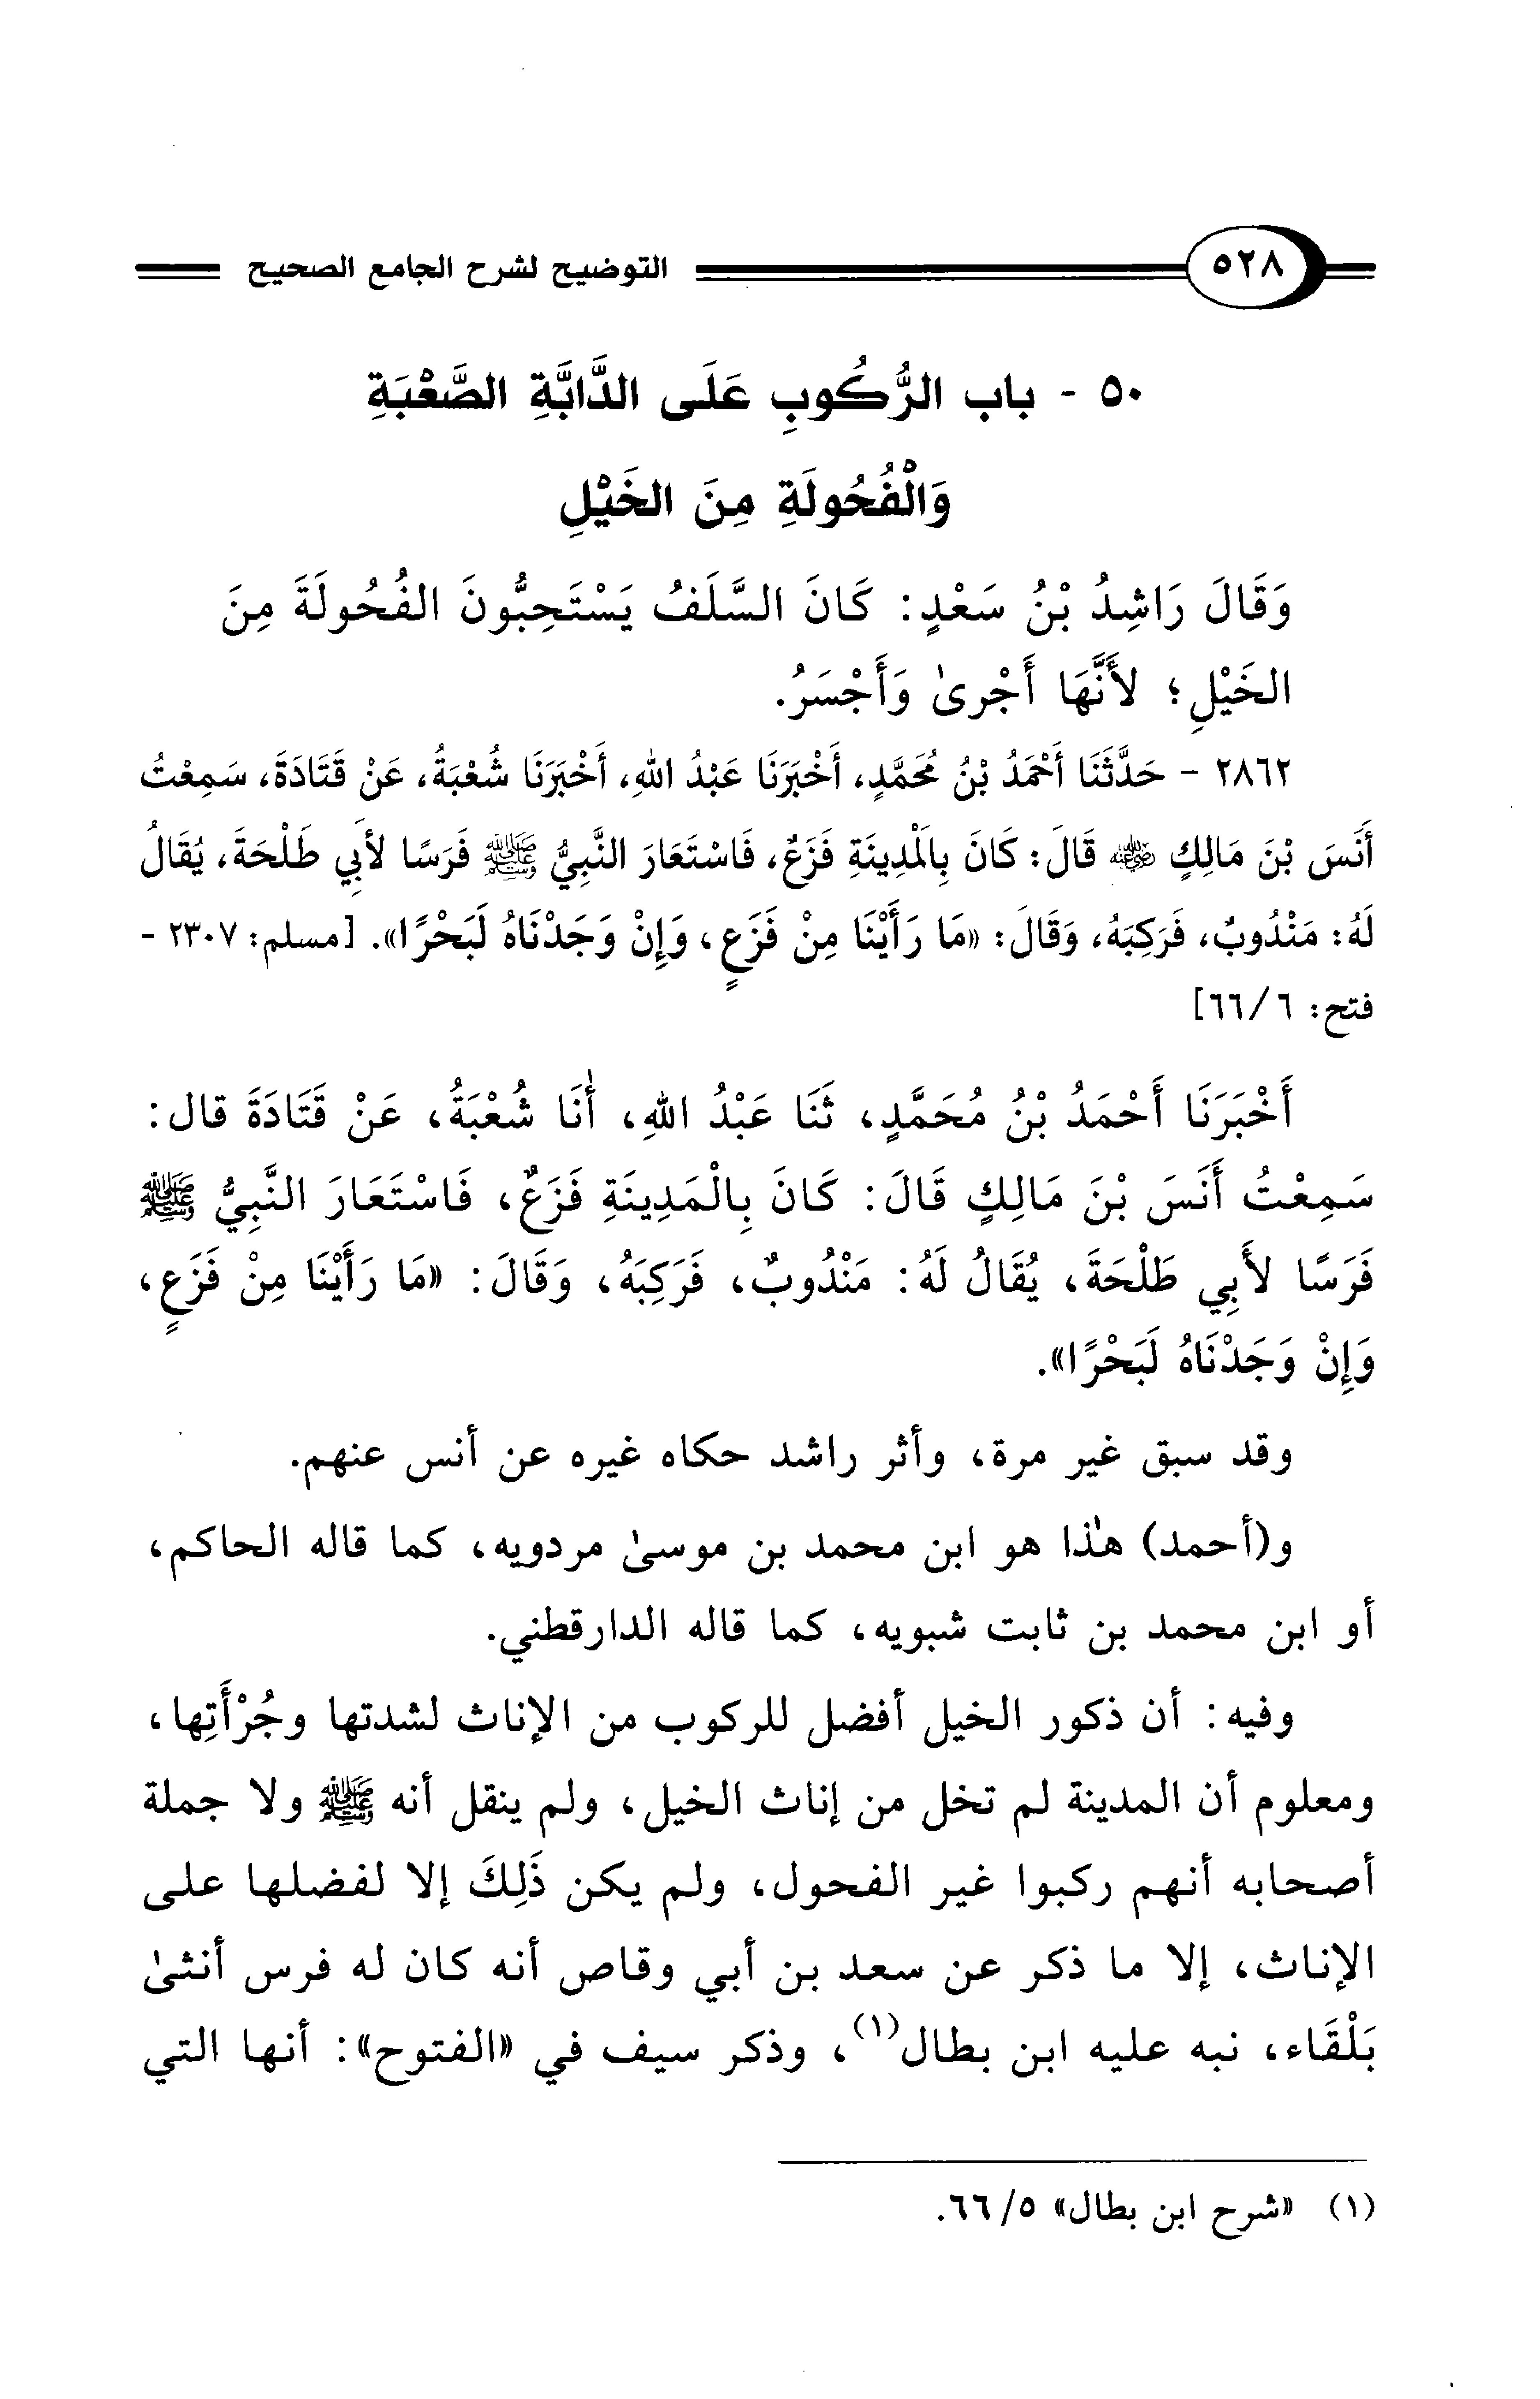 ٥٢٨ التوضيح لشرح الجامع الصحيح
٥٠ - باب الرُّكُوبِ عَلَى الدَّابَّةِ الصَّعْبَةِ
وَالْفُحُولَةِ مِنَ الخَيْلِ
وَقَالَ رَاشِدُ بْنُ سَعْدٍ: كَانَ السَّلَفُ يَسْتَحِبُّونَ الفُحُولَةَ مِنَ
الخَيْلِ؛ لأَنَّهَا أَجْرىٰ وَأَجْسَرُ.
٢٨٦٢ - حَدَّثَنَا أَحْمَدُ بْنُ مُحَمَّدٍ، أَخْبَرَنَا عَبْدُ اللهِ، أَخْبَرَنَا شُعْبَةُ، عَنْ قَتَادَةَ، سَمِعْتُ
أَنَسَ بْنَ مَالِكٍ رضي الله عنه قَالَ: كَانَ بِالْمَدِينَةِ فَزَعٌ، فَاسْتَعَارَ النَّبِيُّ ﷺ فَرَسًا لأَبِي طَلْحَةَ، يُقَالُ
لَهُ: مَنْدُوبٌ، فَرَكِبَهُ، وَقَالَ: «مَا رَأَيْنَا مِنْ فَزَعٍ، وَإِنْ وَجَدْنَاهُ لَبَحْرًا». [مسلم: ٢٣٠٧ -
فتح: ٦/ ٦٦]
أَخْبَرَنَا أَحْمَدُ بْنُ مُحَمَّدٍ، ثَنَا عَبْدُ اللهِ، أَنَا شُعْبَةُ، عَنْ قَتَادَةَ قال:
سَمِعْتُ أَنَسَ بْنَ مَالِكٍ قَالَ: كَانَ بِالْمَدِينَةِ فَزَعٌ، فَاسْتَعَارَ النَّبِيُّ ﷺ
فَرَسًا لأَبِي طَلْحَةَ، يُقَالُ لَهُ: مَنْدُوبٌ، فَرَكِبَهُ، وَقَالَ: «مَا رَأَيْنَا مِنْ فَزَعٍ،
وَإِنْ وَجَدْنَاهُ لَبَحْرًا».
وقد سبق غير مرة، وأثر راشد حكاه غيره عن أنس عنهم.
و(أحمد) هٰذا هو ابن محمد بن موسىٰ مردويه، كما قاله الحاكم،
أو ابن محمد بن ثابت شبويه، كما قاله الدارقطني.
وفيه: أن ذكور الخيل أفضل للركوب من الإناث لشدتها وجُرْأَتِها،
ومعلوم أن المدينة لم تخل من إناث الخيل، ولم ينقل أنه ﷺ ولا جملة
أصحابه أنهم ركبوا غير الفحول، ولم يكن ذَلِكَ إلا لفضلها على
الإناث، إلا ما ذكر عن سعد بن أبي وقاص أنه كان له فرس أنثىٰ
بَلْقَاء، نبه عليه ابن بطال(١)، وذكر سيف في «الفتوح»: أنها التي
(١) «شرح ابن بطال» ٥/ ٦٦.